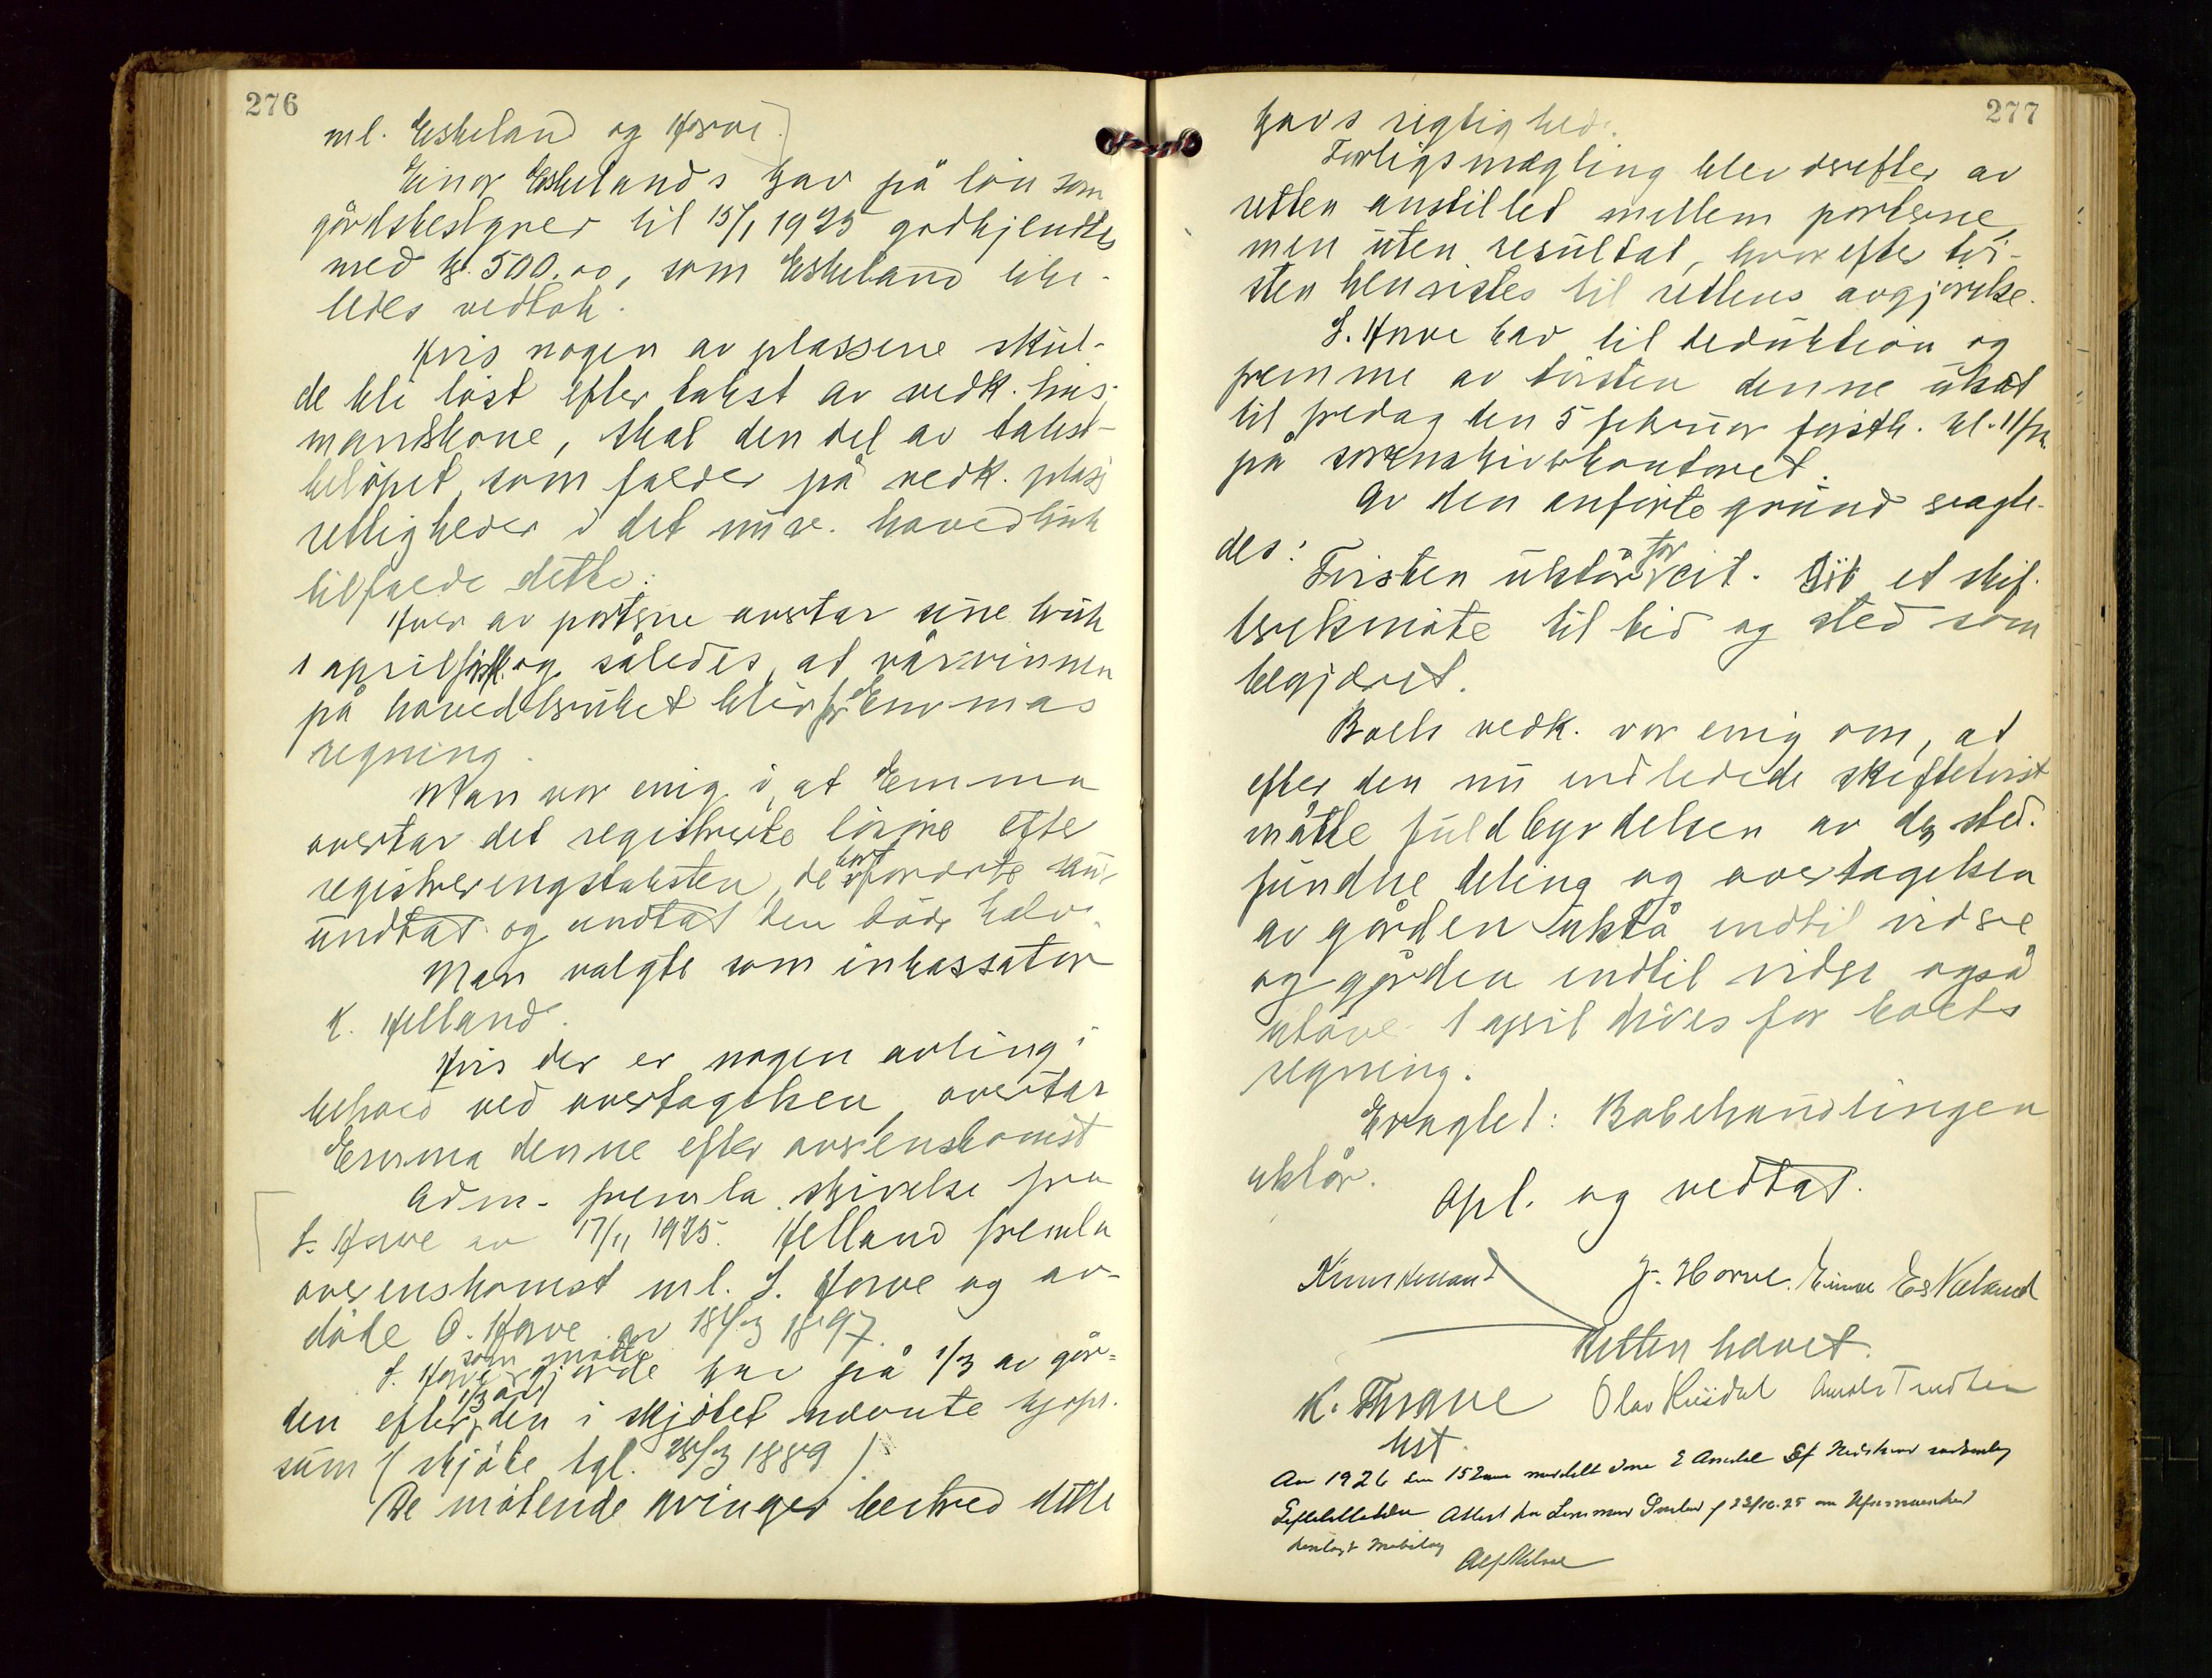 276
ml. Eskeland og Horve.
Einar Eskelands krav på lön som
gårdsbestyrer til 15/1 1925 godkjendtes
med kr. 500.00, som Eskeland like-
ledes vedtok.
Hvis nogen av plassene skul-
de bli löst efter takst av vedk. hus-
mandskone, skal den del av takst-
belöpet, som falder på vedk. plass
rettigheder i det nuv. hovedbruk
tilfalde dette.
Hver av parterne overtar sine bruk
1 april förstk. og således, at vårvinnen
på hovedbruket blir for Emmas
regning.
Man var enig i, at Emma
overtar det registrerte lösöre efter
registreringstaksten, de
undtat og undtat den döde kalv.
Man valgte som inkassator
K. Helland.
Hvis der er nogen avling i
behold ved overtagelsen, overtar
Emma denne efter overenskomst
Adm. fremla skrivelse fra
S. Horve av 17/11 1925. Helland fremla
overenskomst ml. S. Horve og av-
döde O. Horve av 18/3 1897.
S. Horve som mötte gjorde krav på 1/3 av går-
den efter 1/3 av den i skjötet nævnte kjöpe-
sum (skjöte tgl. 28/3 1889).
De mötende arvinger bestred dette
277
kravs rigtighed.
Forligsmægling blev derefter av
retten anstillet mellem parterne,
men uten resultat, hvorefter tvi-
sten henvistes til rettens avgjörelse.
S. Horve bad til deduktion og
fremme av tvisten denne utsat
til fredag den 5 februar förstk. kl. 11 fm.
på sorenskriverkontoret.
Av den anförte grund eragte-
des:
Tvisten utstår for eit. til et skif-
teretsmöte til tid og sted som
begjæret.
Boets vedk. var enig om, at
efter den nu indledede skiftetvist
måtte fuldbyrdelsen av den sted-
fundne deling og overtagelsen
av gården utstå indtil videre
og gården indtil videre også
utover 1 april drives for boets
regning.
Eragtet: Bobehandlingen
utstår.
Opl. og vedtat.
Knut Helland S. Horve. Einar Eskeland
Retten hævet.
K. Thrane Olav Risdal
Utst.
Alf Nilsen